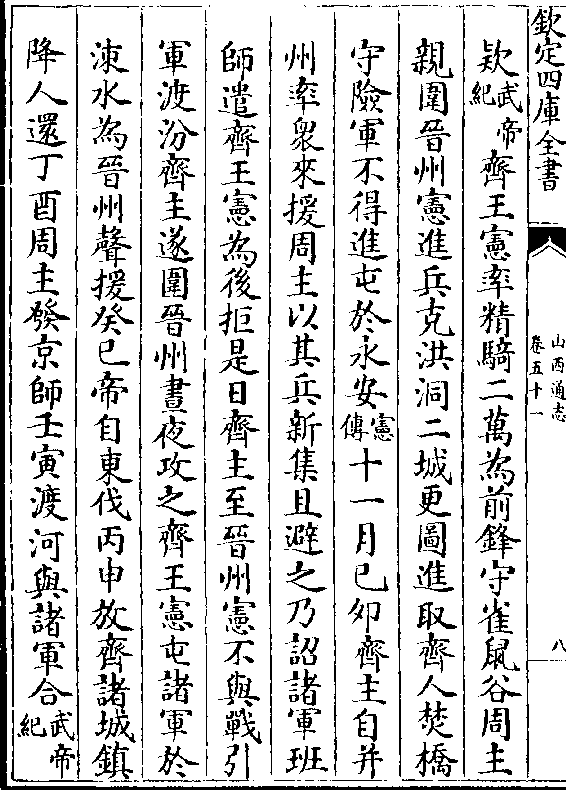 欽定四庫全書
山西通志
卷五十一
八
欵武帝紀齊王憲率精騎二萬為前鋒守雀鼠谷周主
親圍晉州憲進兵克洪洞二城更圖進取齊人焚橋
守險軍不得進屯於永安憲傳十一月己卯齊主自并
州率衆來援周主以其兵新集且避之乃詔諸軍班
師遣齊王憲為後拒是日齊主至晉州憲不與戰引
軍渡汾齊主遂圍晉州晝夜攻之齊王憲屯諸軍於
涑水為晉州聲援癸巳帝自東伐丙申放齊諸城鎮
降人還丁酉周主發京師壬寅渡河與諸軍合武帝紀